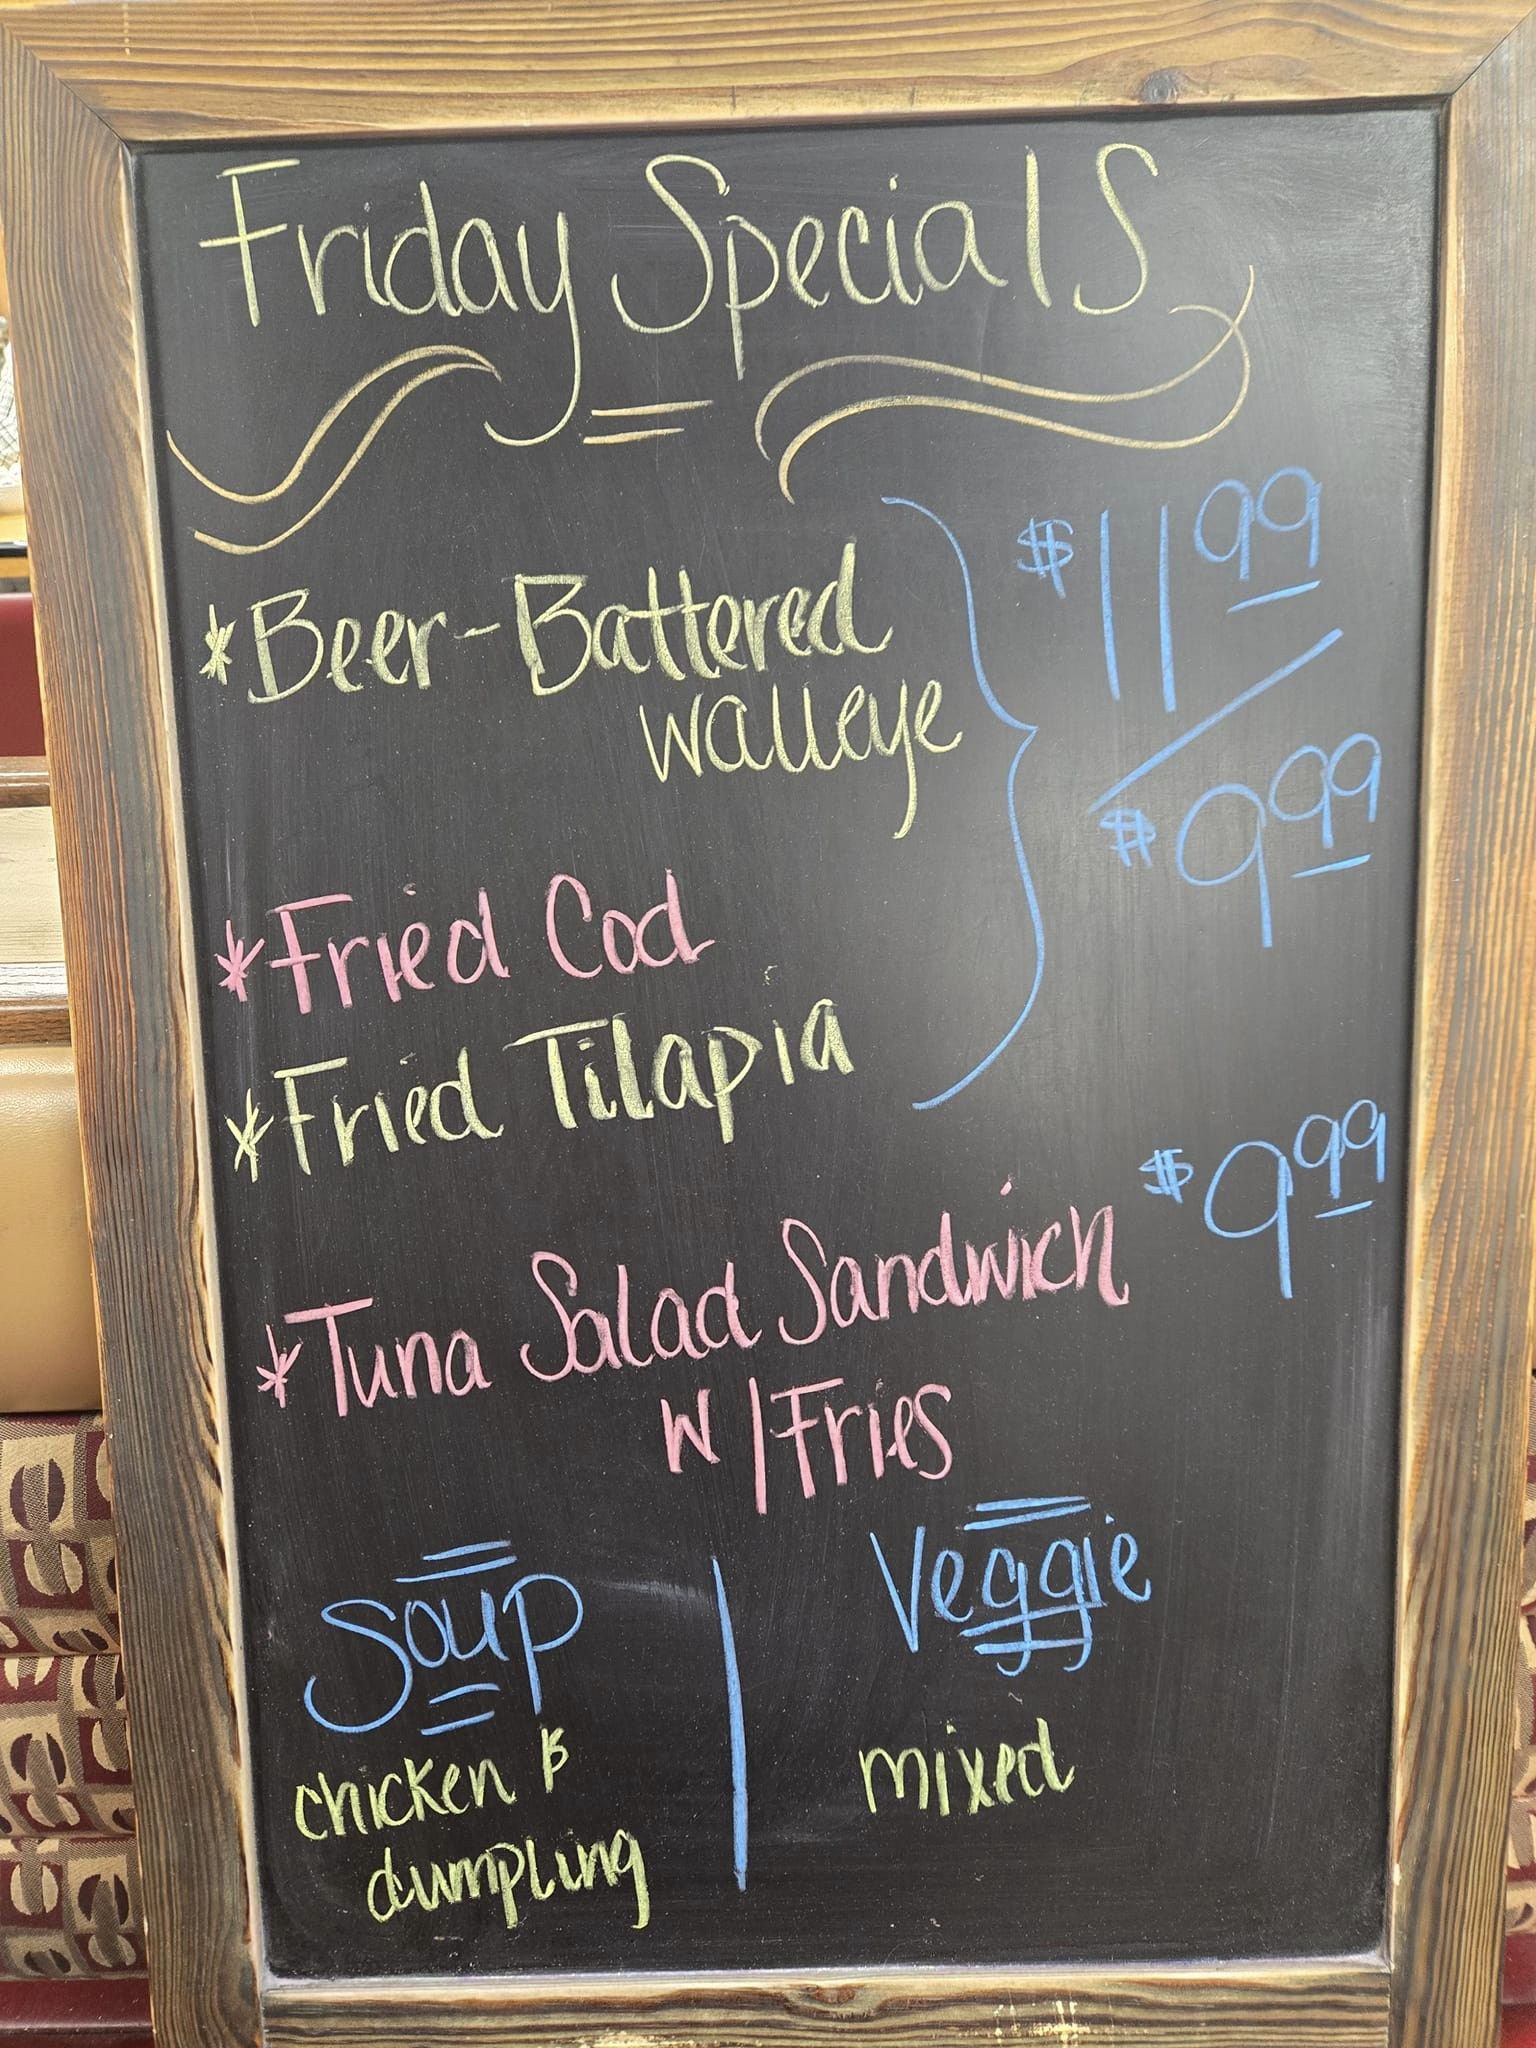 Friday Specials
*Beer-Battered
walleye
$11.99
/
$9.99
*Fried Cod
*Fried Tilapia
$9.99
*Tuna Salad Sandwich
w/Fries
Soup
chicken &
dumpling
Veggie
mixed